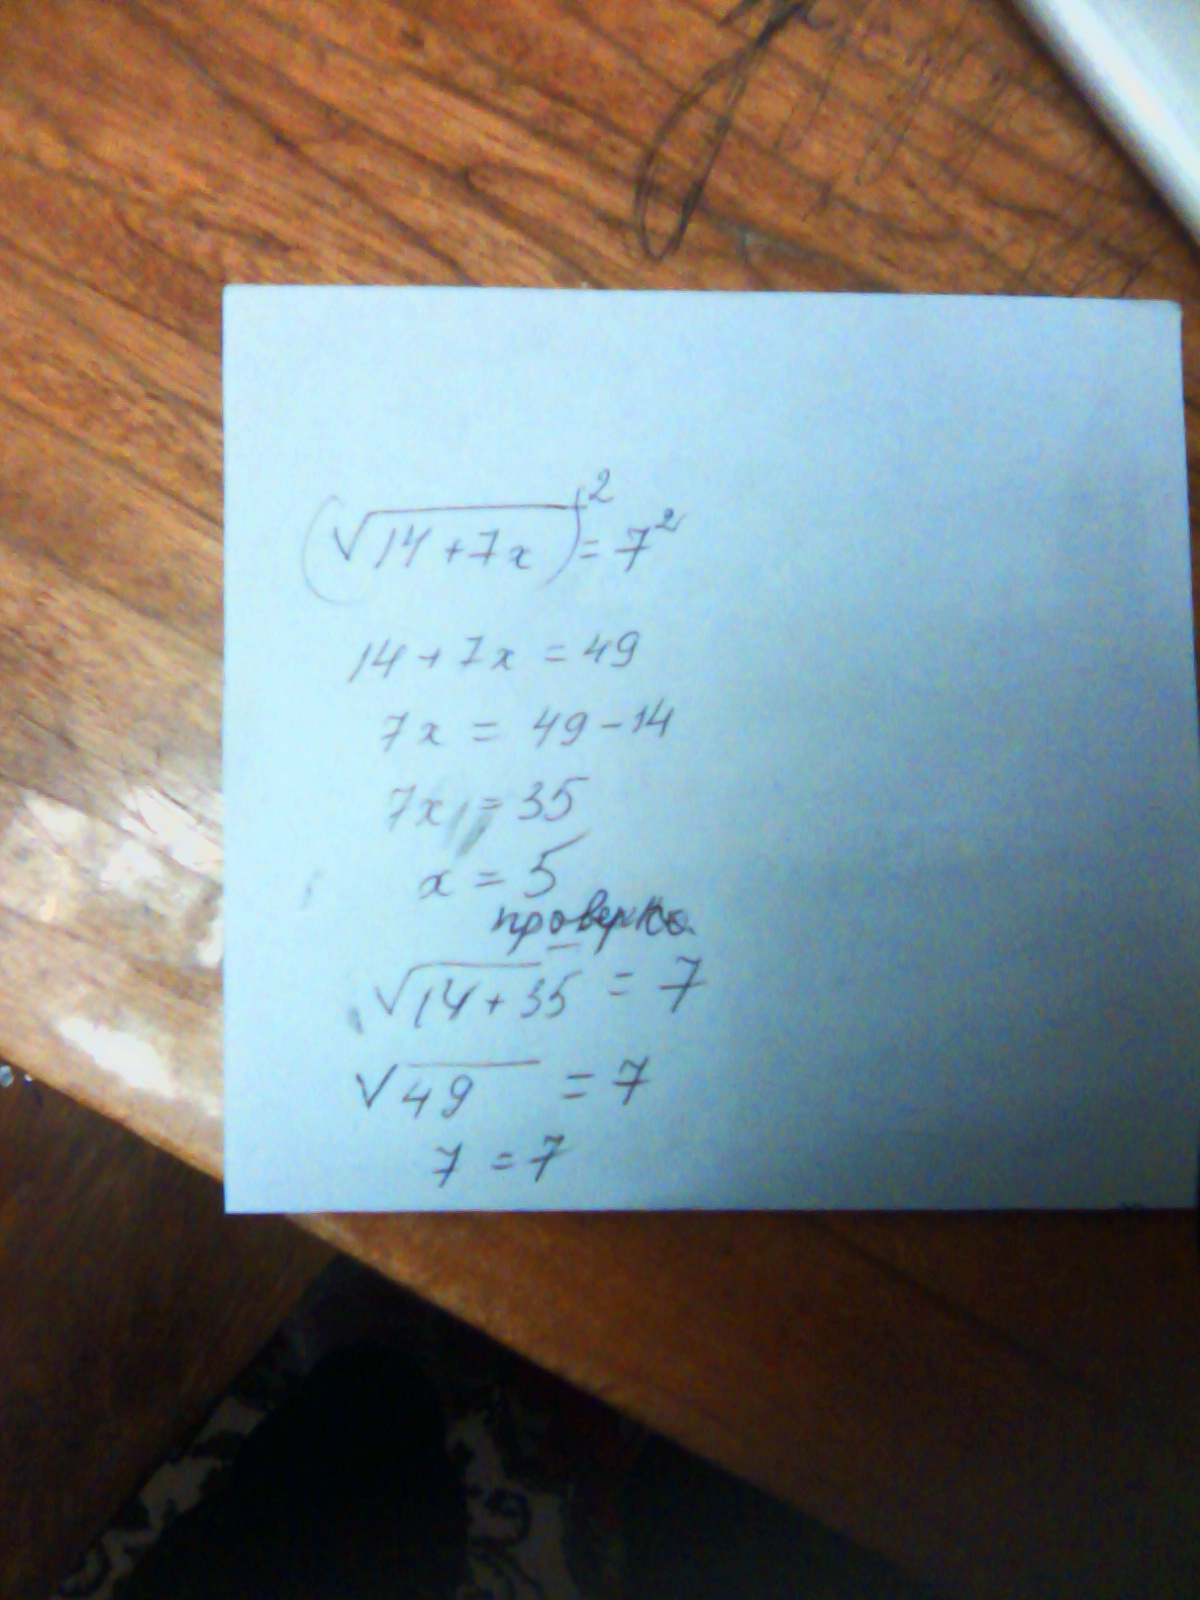 (√14+7x)² = 7²
14+7x = 49
7x = 49-14
7x = 35
x = 5
проверка
√14+35 = 7
√49 = 7
7 = 7